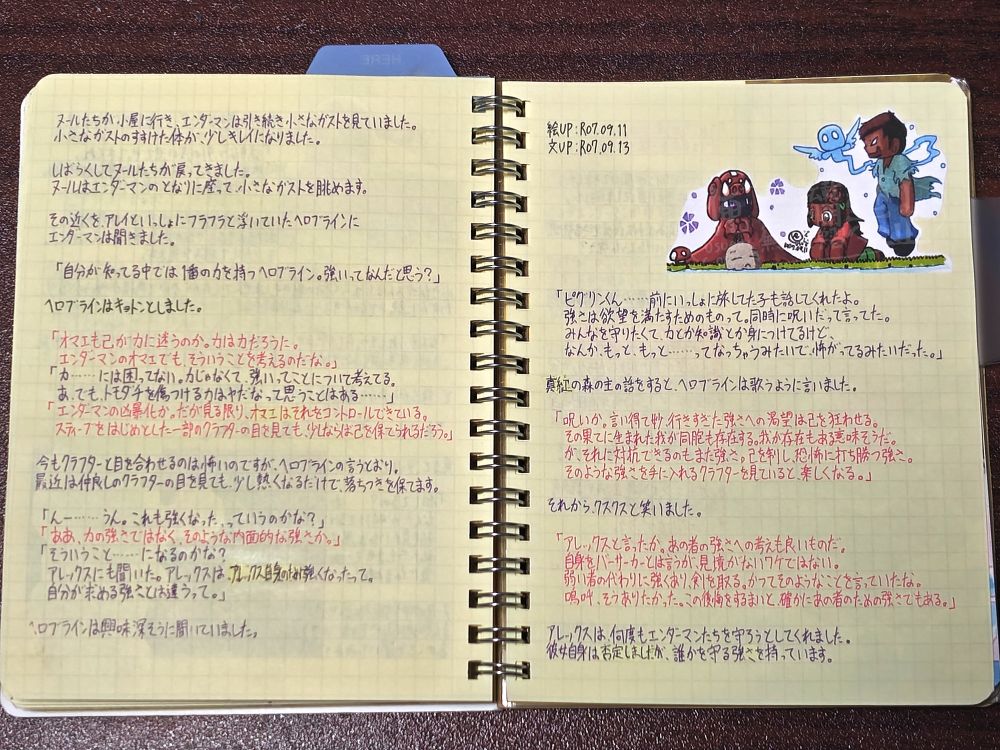 HERE
ヌールたちが小屋に行き、エンダーマンは引き続き小さなガストを見ていました。
小さなガストのすすけた体が、少しキレイになりました。
しばらくしてヌールたちが戻ってきました。
ヌールはエンダーマンのとなりに座って、小さなガストを眺めます。
その近くを、アレイといっしょにフラフラと浮いていたヘロブラインに
エンダーマンは聞きました。
「自分が知ってる中では1番の力を持つヘロブライン。強いってなんだと思う?」
ヘロブラインはキョトンとしました。
「オマエも己が力に迷うのか。力は力だろうに。
エンダーマンのオマエでも、そういうことを考えるのだな。」
「力……には困ってない。力じゃなくて、強いってことについて考えてる。
あ、でも、トモダチを傷つける力はヤだなって思うことはある……」
「エンダーマンの凶暴化か。だが見る限り、オマエはそれをコントロールできている。
スティーブをはじめとした一部のクラフターの目を見ても、少しならば己を保てられるだろう。」
今もクラフターと目を合わせるのは怖いのですが、ヘロブラインの言うとおり、
最近は仲良しのクラフターの目を見ても、少し熱くなるだけで、落ちつきを保てます。
「んー……うん。これも強くなった、っていうのかな?」
「ああ、力の強さではなく、そのような内面的な強さか。」
「そういうこと……になるのかな?
アレックスにも聞いた。アレックスは、アレックス自身のため強くなったって。
自分が求める強さとは違うって。」
ヘロブラインは興味深そうに聞いていました。
絵UP:R07.09.11
文UP:R07.09.13
「ピグリンくん……前にいっしょに旅してた子も話してくれたよ。
強さは欲望を満たすためのものって。同時に呪いだって言ってた。
みんなを守りたくて、力とか知識とか身につけてるけど、
なんか、もっと、もっと……ってなっちゃうみたいで、怖がってるみたいだった。」
真紅の森の主の話をすると、ヘロブラインは歌うように言いました。
「呪いか。言い得て妙、行きすぎた強さへの渇望は己を狂わせる。
その果てに生まれた我が同胞も存在する。我が存在もある意味そうだ。
が、それに対抗できるのもまた強さ。己を制し、恐怖に打ち勝つ強さ。
そのような強さを手に入れるクラフターを見ていると、楽しくなる。」
それから、クスクスと笑いました。
「アレックスと言ったか。あの者の強さへの考えも良いものだ。
自身をバーサーカーとは言うが、見境がないワケではない。
弱い者の代わりに強くあり、剣を取る。かつてそのようなことを言っていたな。
嗚呼、そうありたかった。この後悔をするまいと、確かにあの者のための強さでもある。」
アレックスは、何度もエンダーマンたちを守ろうとしてくれました。
彼女自身は否定しましたが、誰かを守る強さを持っています。